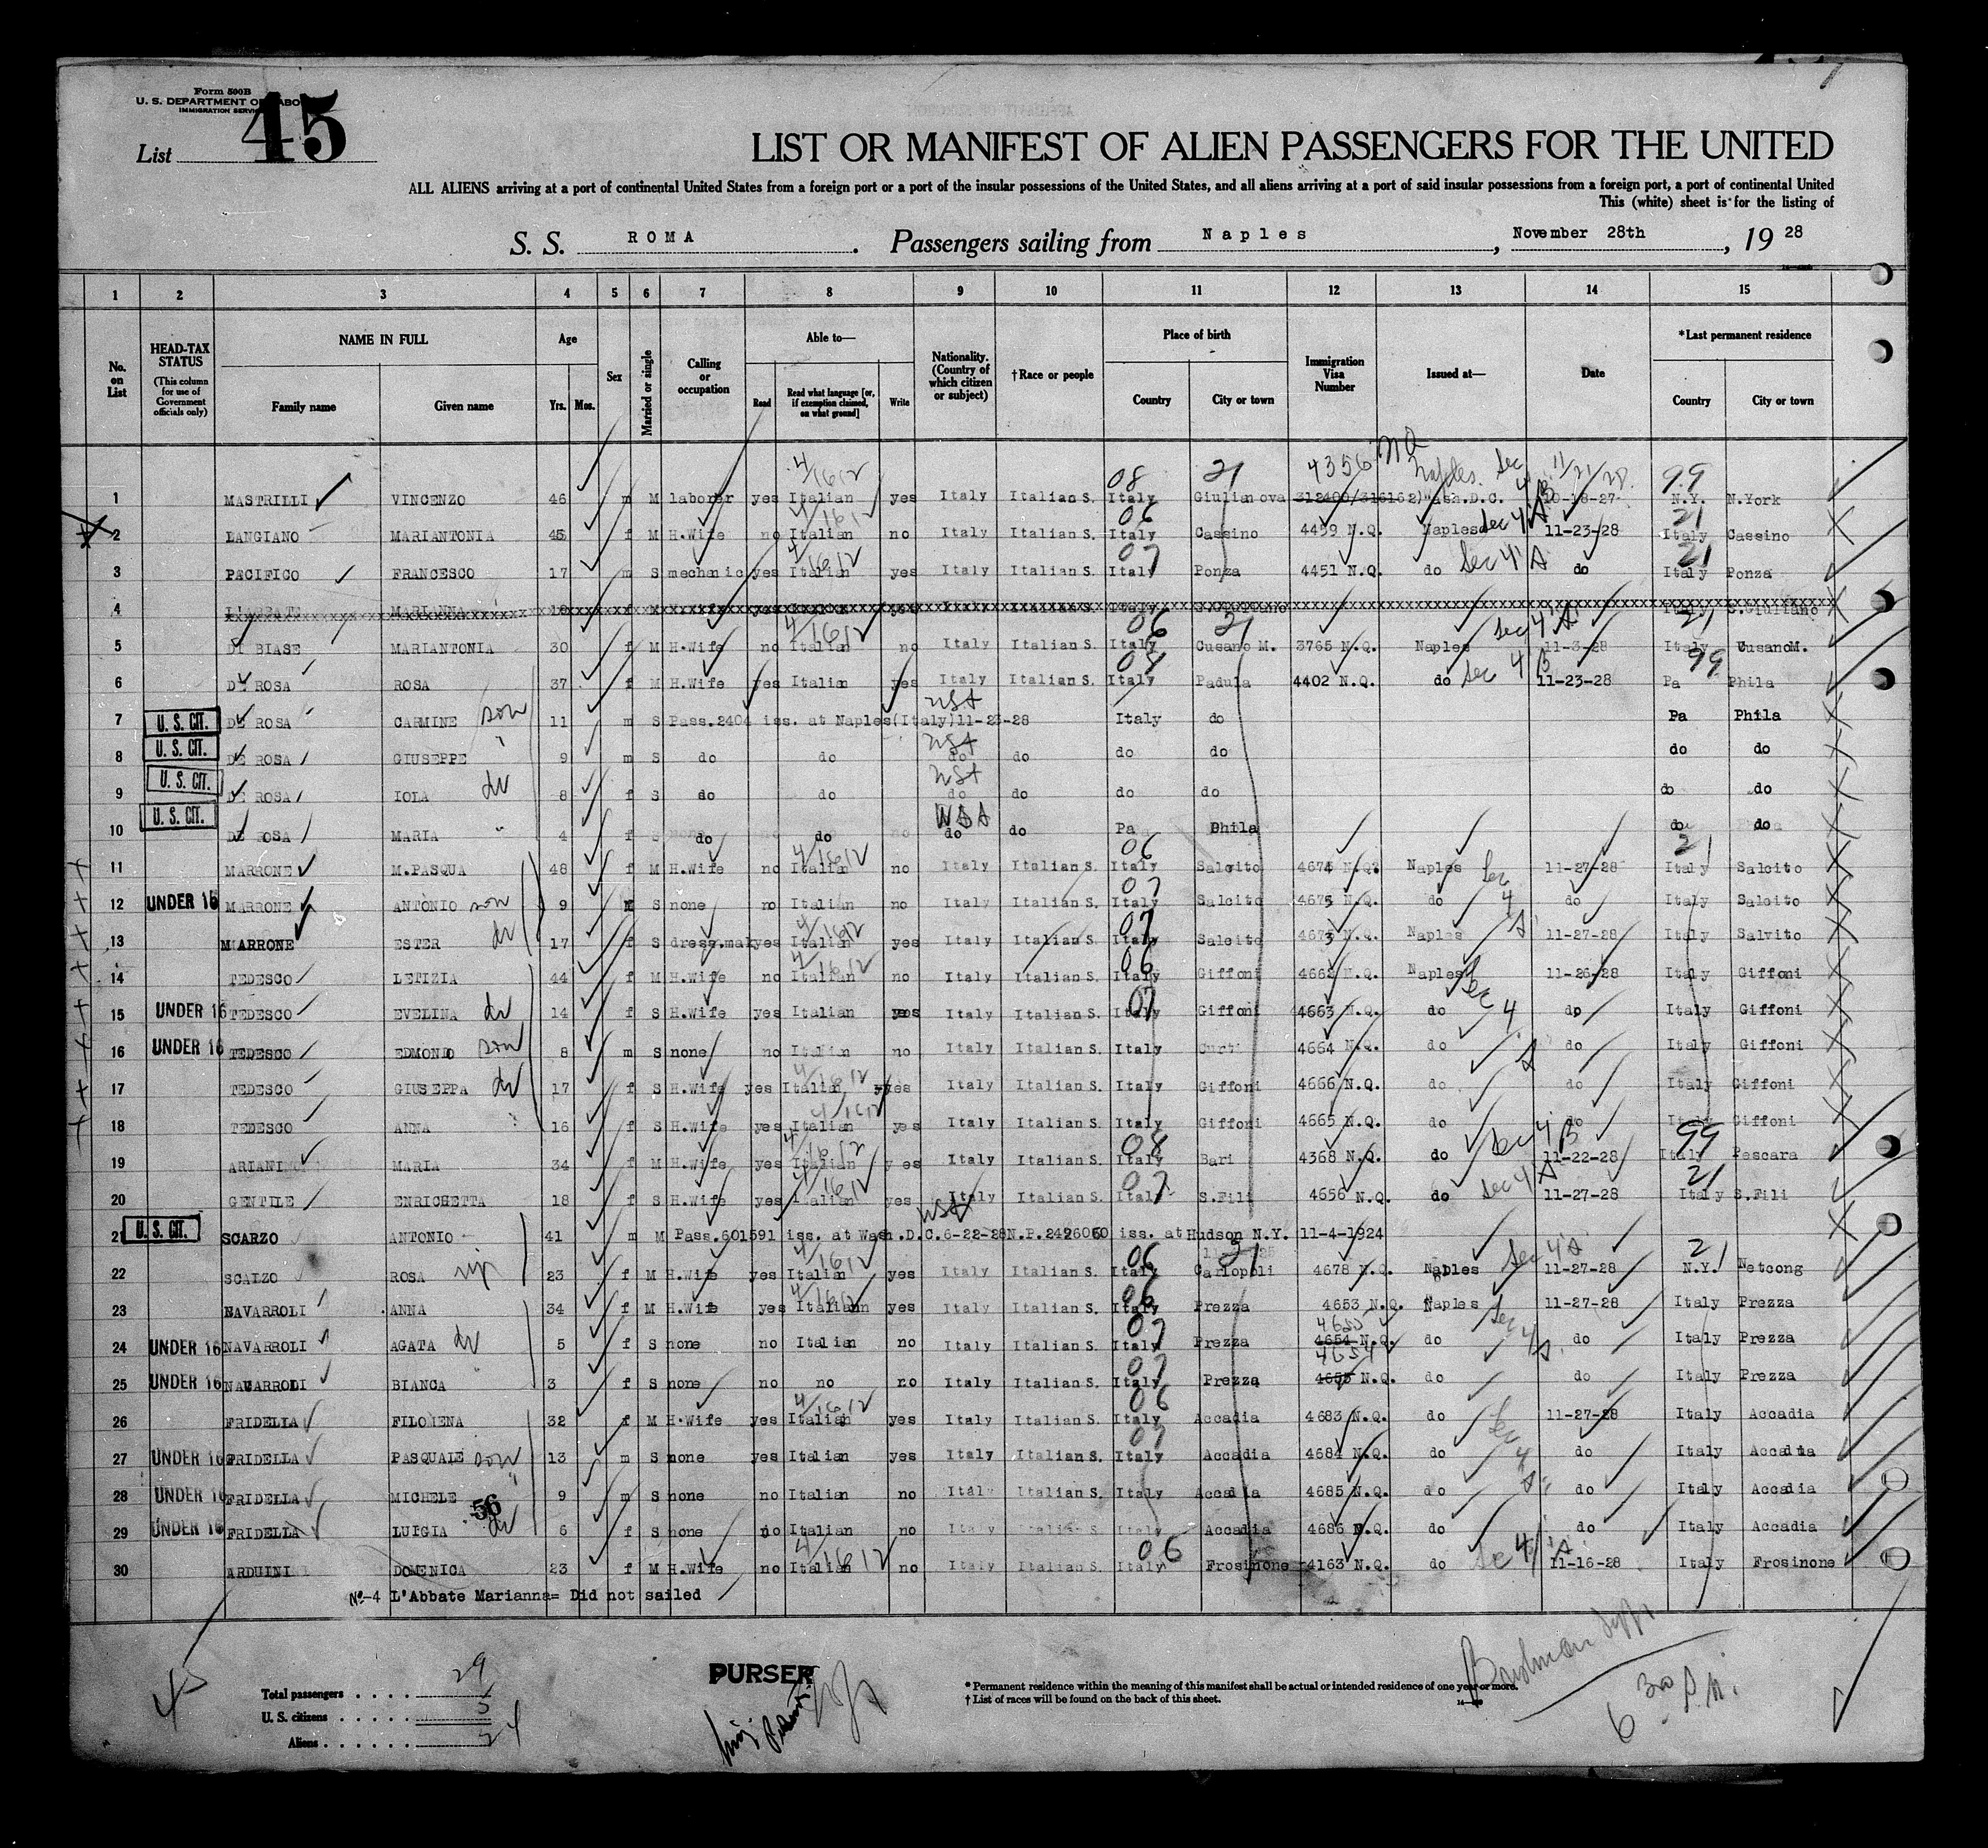 Form 500B
U. S. DEPARTMENT OF LABOR
IMMIGRATION SERVICE
List 45
LIST OR MANIFEST OF ALIEN PASSENGERS FOR THE UNITED
ALL ALIENS arriving at a port of continental United States from a foreign port or a port of the insular possessions of the United States, and all aliens arriving at a port of said insular possessions from a foreign port, a port of continental United
This (white) sheet is for the listing of
S. S. ROMA. Passengers sailing from Naples, November 28th, 1928
1 2 3 4 5 6 7 8 9 10 11 12 13 14 15
No. on List
HEAD-TAX STATUS (This column for use of Government officials only)
NAME IN FULL Family name Given name
Age Yrs. Mos.
Sex
Married or single
Calling or occupation
Able to— Read Read what language [or, if exemption claimed, on what ground] Write
Nationality. (Country of which citizen or subject)
†Race or people
Place of birth Country City or town
Immigration Visa Number
Issued at—
Date
*Last permanent residence Country City or town
4356 NQ Naples. Sec 4 B 11/21/28.
1 MASTRILLI VINCENZO 46 m M laborer yes Italian yes Italy Italian S. Italy Giulianova Wash.D.C. 10-18-27 N.Y. N.York
2 LANGIANO MARIANTONIA 45 f M H.Wife no Italian no Italy Italian S. Italy Cassino 4459 N.Q. Naples Sec 4 A 11-23-28 Italy Cassino
3 PACIFICO FRANCESCO 17 m S mechanic yes Italian yes Italy Italian S. Italy Ponza 4451 N.Q. do Sec 4 A do Italy Ponza
4 L'ABBATE MARIANNA
5 DI BIASE MARIANTONIA 30 f M H.Wife no Italian no Italy Italian S. Italy Cusano M. 3765 N.Q. Naples Sec 4 A 11-3-28 Italy CusanoM.
6 DE ROSA ROSA 37 f M H.Wife yes Italian yes Italy Italian S. Italy Padula 4402 N.Q. do Sec 4 B 11-23-28 Pa Phila
7 U. S. CIT. DE ROSA CARMINE son 11 m S Pass.2404 iss. at Naples(Italy)11-23-28 USA Italy do Pa Phila
8 U. S. CIT. DE ROSA GIUSEPPE " 9 m S do do USA do do do do do do
9 U. S. CIT. DE ROSA IOLA 8 f S do do USA do do do do do do
10 U. S. CIT. DE ROSA MARIA " 4 f S do do USA do do Pa Phila do do
11 MARRONE M.PASQUA 48 f M H.Wife no Italian no Italy Italian S. Italy Salcito 4674 N.Q. Naples 11-27-28 Italy Salcito
12 UNDER 16 MARRONE ANTONIO son 9 m S none no Italian no Italy Italian S. Italy Salcito 4675 N.Q. do do Italy Salcito
13 MARRONE ESTER 17 f S dress.mak yes Italian yes Italy Italian S. Italy Salcito 4673 N.Q. Naples 11-27-28 Italy Salvito
14 TEDESCO LETIZIA 44 f M H.Wife no Italian no Italy Italian S. Italy Giffoni 4662 N.Q. Naples 11-26-28 Italy Giffoni
15 UNDER 16 TEDESCO EVELINA 14 f S H.Wife yes Italian yes Italy Italian S. Italy Giffoni 4663 N.Q. do do Italy Giffoni
16 UNDER 16 TEDESCO EDMONDO son 8 m S none no Italian no Italy Italian S. Italy Curti 4664 N.Q. do do Italy Giffoni
17 TEDESCO GIUSEPPA 17 f S H.Wife yes Italian yes Italy Italian S. Italy Giffoni 4666 N.Q. do do Italy Giffoni
18 TEDESCO ANNA 16 f S H.Wife yes Italian yes Italy Italian S. Italy Giffoni 4665 N.Q. do do Italy Giffoni
19 ARIANI MARIA 34 f M H.Wife yes Italian yes Italy Italian S. Italy Bari 4368 N.Q. do Sec 4 B 11-22-28 Italy Pescara
20 GENTILE ENRICHETTA 18 f S H.Wife yes Italian yes Italy Italian S. Italy S.Fili 4656 N.Q. do Sec 4 A 11-27-28 Italy S.Fili
21 U. S. CIT. SCARZO ANTONIO 41 m M Pass.601591 iss. at Wash.D.C.6-22-28 USA iss. at Hudson N.Y. 11-4-1924
22 SCALZO ROSA 23 f M H.Wife yes Italian yes Italy Italian S. Italy Carlopoli 4678 N.Q. Naples Sec 4 A 11-27-28 N.Y. Netcong
23 NAVARROLI ANNA 34 f M H.Wife yes Italian yes Italy Italian S. Italy Prezza 4653 N.Q. Naples 11-27-28 Italy Prezza
24 UNDER 16 NAVARROLI AGATA 5 f S none no Italian no Italy Italian S. Italy Prezza 4655 4654 N.Q. do do Italy Prezza
25 UNDER 16 NAVARROLI BIANCA 3 f S none no no no Italy Italian S. Italy Prezza 4654 4655 N.Q. do do Italy Prezza
26 FRIDELLA FILOMENA 32 f M H.Wife yes Italian yes Italy Italian S. Italy Accadia 4683 N.Q. do 11-27-28 Italy Accadia
27 UNDER 16 FRIDELLA PASQUALE son 13 m S none yes Italian yes Italy Italian S. Italy Accadia 4684 N.Q. do do Italy Accadia
28 UNDER 16 FRIDELLA MICHELE " 9 m S none no Italian no Italy Italian S. Italy Accadia 4685 N.Q. do do Italy Accadia
56
29 UNDER 16 FRIDELLA LUIGIA 6 f S none no Italian no Italy Italian S. Italy Accadia 4686 N.Q. do do Italy Accadia
30 ARDUINI DOMENICA 23 f M H.Wife no Italian no Italy Italian S. Italy Frosinone 4163 N.Q. do Sec 4 A 11-16-28 Italy Frosinone
No-4 L'Abbate Marianna= Did not sailed
Total passengers . . . . 29
U. S. citizens . . . . . 5
Aliens . . . . . . 24
PURSER
* Permanent residence within the meaning of this manifest shall be actual or intended residence of one year or more.
† List of races will be found on the back of this sheet.
6 30 P.M.